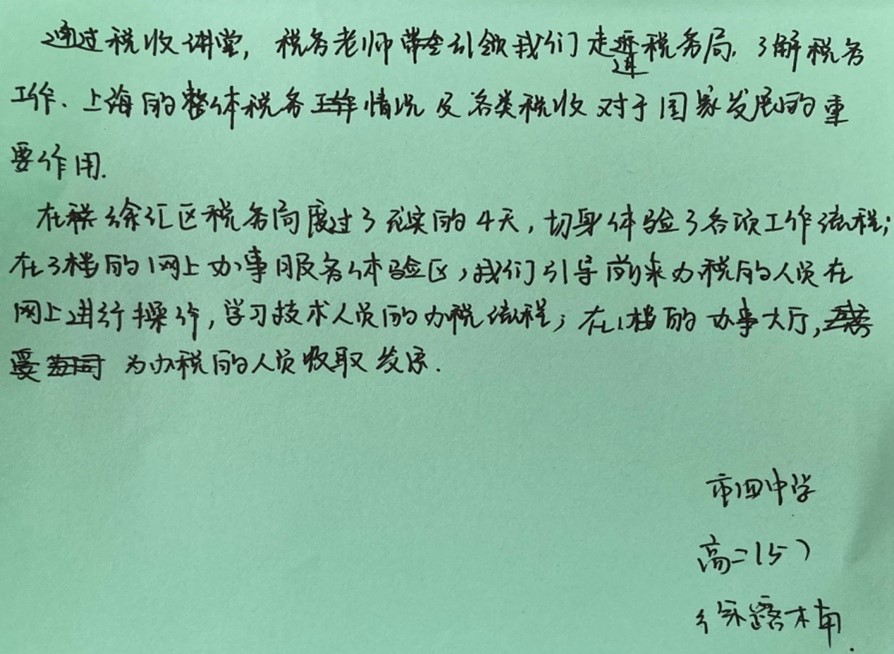 通过税收讲堂，税务老师引领我们走进税务局，了解税务
工作、上海的整体税务情况及各类税收对于国家发展的重
要作用.
在徐汇区税务局度过了充实的4天，切身体验了各项工作流程；
在3楼的网上办事服务体验区，我们引导前来办税的人员在
网上进行操作，学习技术人员的办税流程；在1楼的办事大厅，
为办税的人员收取发票.
市四中学
高二(5)
徐露楠.